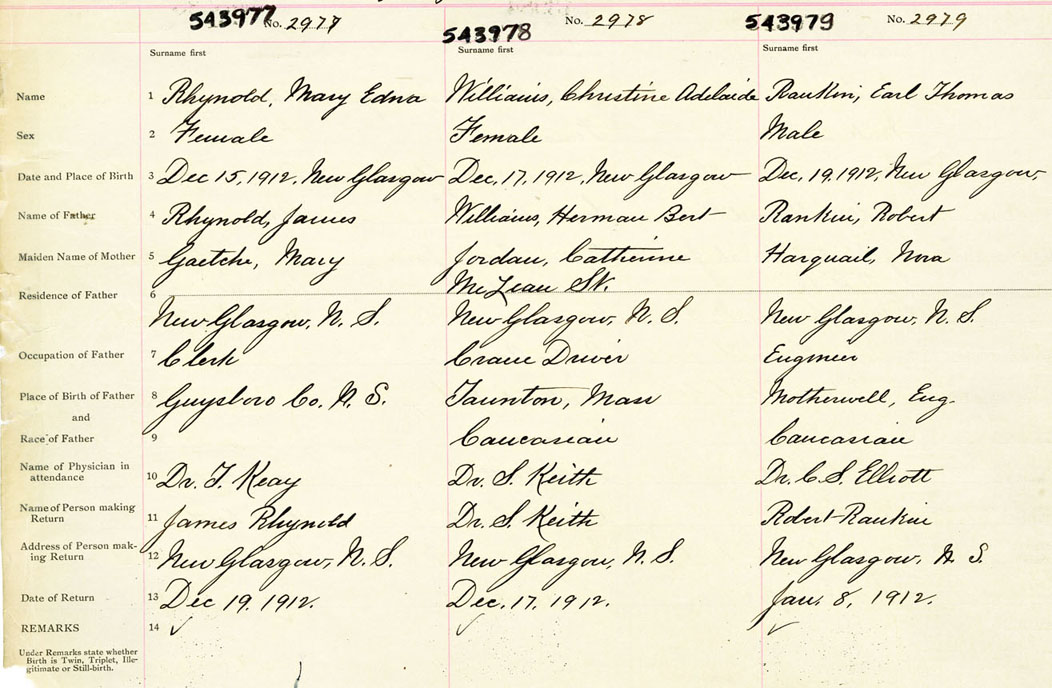 543977 No. 2977 543978 No. 2978 543979 No. 2979
Surname first Surname first Surname first
Name 1 Rhynold, Mary Edna Williams, Christine Adelaide Rankin, Earl Thomas
Sex 2 Female Female Male
Date and Place of Birth 3 Dec 15, 1912, New Glasgow Dec, 17, 1912, New Glasgow Dec, 19, 1912, New Glasgow,
Name of Father 4 Rhynold, James Williams, Herman Bert Rankin, Robert
Maiden Name of Mother 5 Gaetche, Mary Jordan, Catherine Harquail, Nora
Residence of Father 6 McLean St.
New Glasgow, N. S. New Glasgow, N. S. New Glasgow, N. S.
Occupation of Father 7 Clerk Crane Driver Engineer
Place of Birth of Father 8 Guysboro Co. N. S. Taunton, Mass Motherwell, Eng.
and
Race of Father 9 Caucasian Caucasian
Name of Physician in
attendance 10 Dr. J. Keay Dr. S. Keith Dr. C. S. Elliott
Name of Person making
Return 11 James Rhynold Dr. S. Keith Robert Rankin
Address of Person mak-
ing Return 12 New Glasgow, N. S. New Glasgow, N. S. New Glasgow, N. S.
Date of Return 13 Dec 19, 1912. Dec. 17, 1912. Jan. 8, 1912.
REMARKS 14 ✓ ✓ ✓
Under Remarks state whether
Birth is Twin, Triplet, Ille-
gitimate or Still-birth.